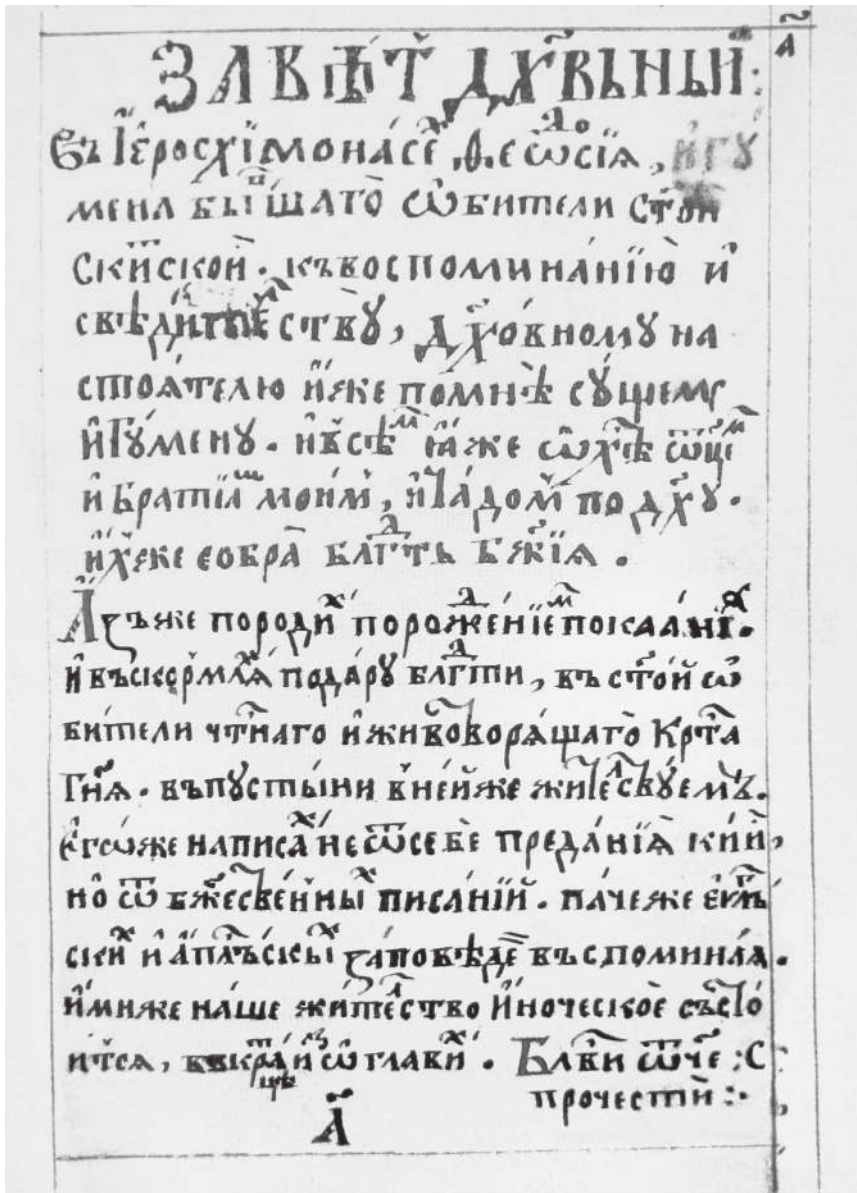 а҃
ЗАВѢ́Т дх҃ѡвьный:
Въ І҆еросхїмона́сѣⷯ Ѳеѡⷣо́сїѧ, и҆гꙋ
мена бы́ⷡшагѡ ѡ҆би́тели ст҃о́й
ски́ⷮской. къ воспомина́нїю и҆
свѣди́тельствꙋ, дх҃о́вномꙋ на
стоѧ́телю и҆́же по мнѣ̀ сꙋ́щемꙋ
и҆гꙋ́менꙋ. и҆ всѣ́ⷨ ꙗ҆́же ѡ҆ хр҇тѣ̀ ѿц҃еⷨ
и҆ бра́тїаⷨ мои́м, и҆ ча́дом по дх҃ꙋ.
и҆́хже собра̀ блⷣгть бж҃їѧ.
А҆́зъ же породи́ⷯ порожⷣе́нїеⷨ покаѧ́нїѧ.
и҆ въскормлѧ́ⷯ по да́рꙋ блⷣгти, въ ст҃о́й ѡ҆
би́тели чтⷭ҇наго и҆ животворѧ́щагѡ Крⷭ҇та̀
Гнⷭ҇ѧ. въ пꙋсты́ни в не́йже жи́тельствꙋемъ.
є҆гѡ́же написа́ⷯ не ѿ себѐ преда́нїѧ кїи́,
но ѿ бж҃е́ственныⷯ писа́нїй. па́че же є҆ѵⷢ҇ль
скиⷯ и҆ а҆пⷭ҇льскиⷯ за́повѣдеⷨ въспомина́ѧ.
и҆́миже на́ше жи́тельство и҆́ноческое състо
и́тсѧ, въ кра́тцѣ и҆з ѡ҆главиⷯ. Блⷭ҇ви ѿче: С
прочести́:
А҃